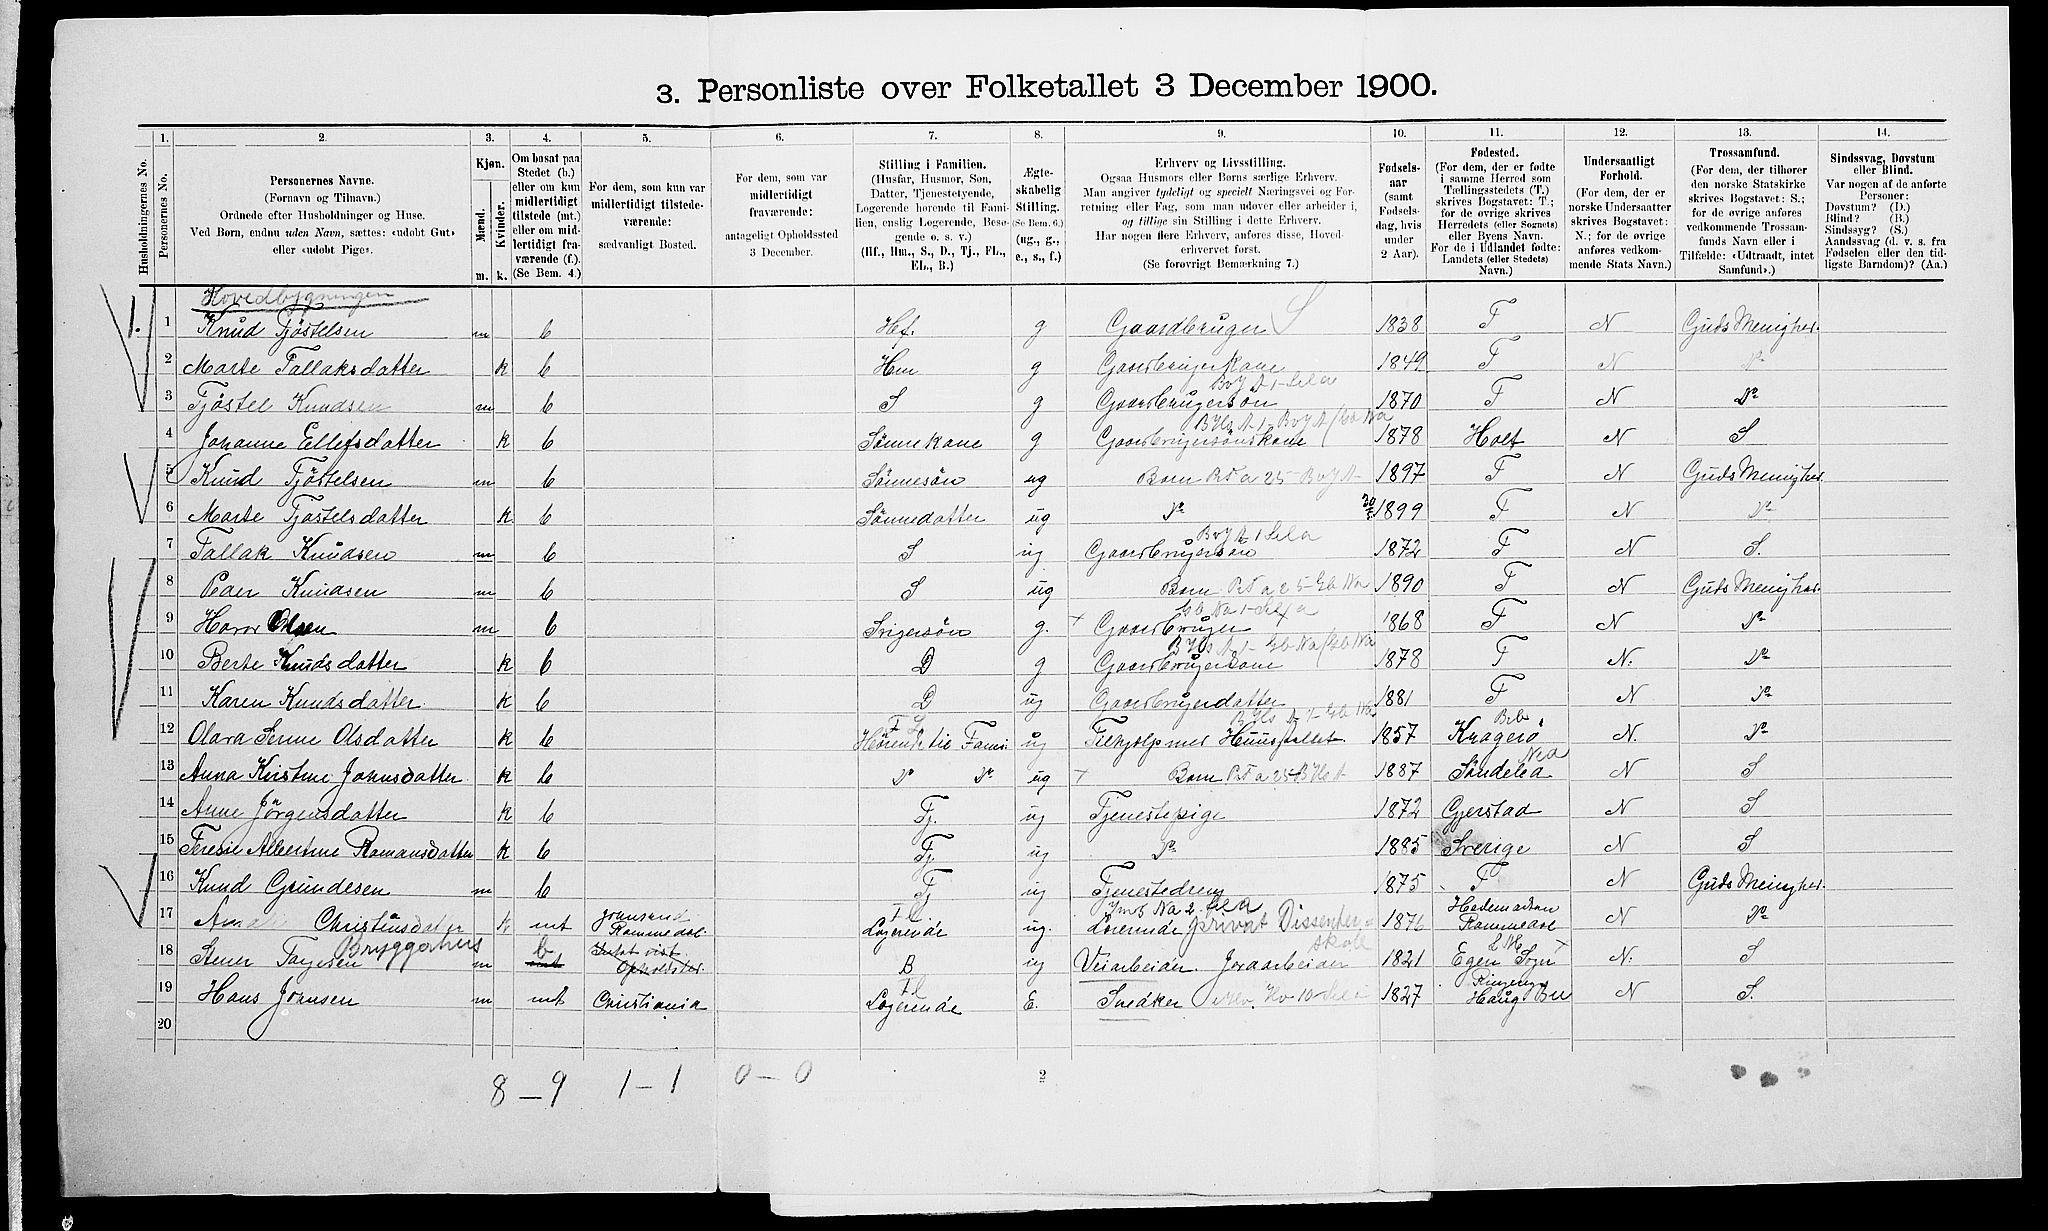 3. Personliste over Folketallet 3 December 1900.
1. 2. 3. 4. 5. 6. 7. 8. 9. 10. 11. 12. 13. 14.
Husholdningernes No.
Personernes No.
Personernes Navne.
(Fornavn og Tilnavn.)
Ordnede efter Husholdninger og Huse.
Ved Børn, endnu uden Navn, sættes: «udøbt Gut»
eller «udøbt Pige».
Kjøn.
Mænd.
Kvinder.
m. k.
Om bosat paa
Stedet (b.)
eller om kun
midlertidigt
tilstede (mt.)
eller om mid-
lertidigt fra-
værende (f.).
(Se Bem. 4.)
For dem, som kun var
midlertidigt tilstede-
værende:
sædvanligt Bosted.
For dem, som var
midlertidigt
fraværende:
antageligt Opholdssted
3 December.
Stilling i Familien.
(Husfar, Husmor, Søn,
Datter, Tjenestetyende,
Logerende hørende til Fami-
lien, enslig Logerende, Besø-
gende o. s. v.)
(Hf., Hm., S., D., Tj., FL.,
EL., B.)
Ægte-
skabelig
Stilling.
(Se Bem. 6.)
(ug., g.,
e., s., f.)
Erhverv og Livsstilling.
Ogsaa Husmors eller Børns særlige Erhverv.
Man angiver tydeligt og specielt Næringsvei og For-
retning eller Fag, som man udøver eller arbeider i,
og tillige sin Stilling i dette Erhverv.
Har nogen flere Erhverv, anføres disse, Hoved-
erhvervet først.
(Se forøvrigt Bemærkning 7.)
Fødsels-
aar
(samt
Fødsels-
dag, hvis
under
2 Aar).
Fødested.
(For dem, der er fødte
i samme Herred som
Tællingsstedets (T.)
skrives Bogstavet: T.;
for de øvrige skrives
Herredets (eller Sognets)
eller Byens Navn.
For de i Udlandet fødte:
Landets (eller Stedets)
Navn.)
Undersaatligt
Forhold.
(For dem, der er
norske Undersaatter
skrives Bogstavet:
N.; for de øvrige
anføres vedkom-
mende Stats Navn.)
Trossamfund.
(For dem, der tilhører
den norske Statskirke
skrives Bogstavet: S.;
for de øvrige anføres
vedkommende Trossam-
funds Navn eller i
Tilfælde: «Udtraadt, intet
Samfund».)
Sindssvag, Døvstum
eller Blind.
Var nogen af de anførte
Personer:
Døvstum? (D.)
Blind? (B.)
Sindssyg? (S.)
Aandssvag (d. v. s. fra
Fødselen eller den tid-
ligste Barndom)? (Aa.)
Hovedbygningen
1. 1 Knud Tjøstelsen m b Hf. g Gaardbruger 1838 T N Guds Menighed.
2 Marte Tallaksdatter k b Hm g Gaardbruger Kone 1849 T N Do
3 Tjøstel Knudsen m b S g Gaardbrugersøn 1870 T N Do
4 Johanne Ellefsdatter k b Sønnekone g Gaardbrugersønskone 1878 Holt N S
5 Knud Tjøstelsen m b Sønnesøn ug Barn 1897 T N Guds Menighed.
6 Marte Tjøstelsdatter k b Sønnedatter ug Do 1899 T N Do
7 Tallak Knudsen m b S ug Gaardbrugersøn 1872 T N S.
8 Peder Knudsen m b S ug Barn 1890 T N Guds Menighed.
9 Olsen m b Svigersøn g. Gaardbruger 1868 T N Do
10 Berte Knudsdatter k b D g Gaardbrugerkone 1878 T N. Do
11 Karen Knudsdatter k b D ug Gaardbrugerdatter 1881 T N Do
12 Olava Olsdatter k b ug Tilhjælp med Huusstellet 1857 Kragerø N. Do
13 Anna Kristine Johnsdatter k b Do Do ug Barn 1887 Søndeled N S
14 Anne Jörgensdatter k b Tj. ug Tjenestepige 1872 Gjerstad N S
15 Albertine Romansdatter k b Tj ug Do 1885 Sverige N S
16 Knud Grundesen m b Tj ug Tjenestedreng 1875 T N Guds Menighed.
17 Christensdatter k mt Logerende ug. Lærerinde privat Dissenter-
skole 1876 Hedemarken
N Do
Bryggerhus
18 m b B ug Veiarbeider. Jordarbeider 1821 N. S
19 Hans Johnsen m mt Christiania Logerende E. Snedker 1827 Haug N S.
20
8 – 9 1 – 1 0 – 0
2